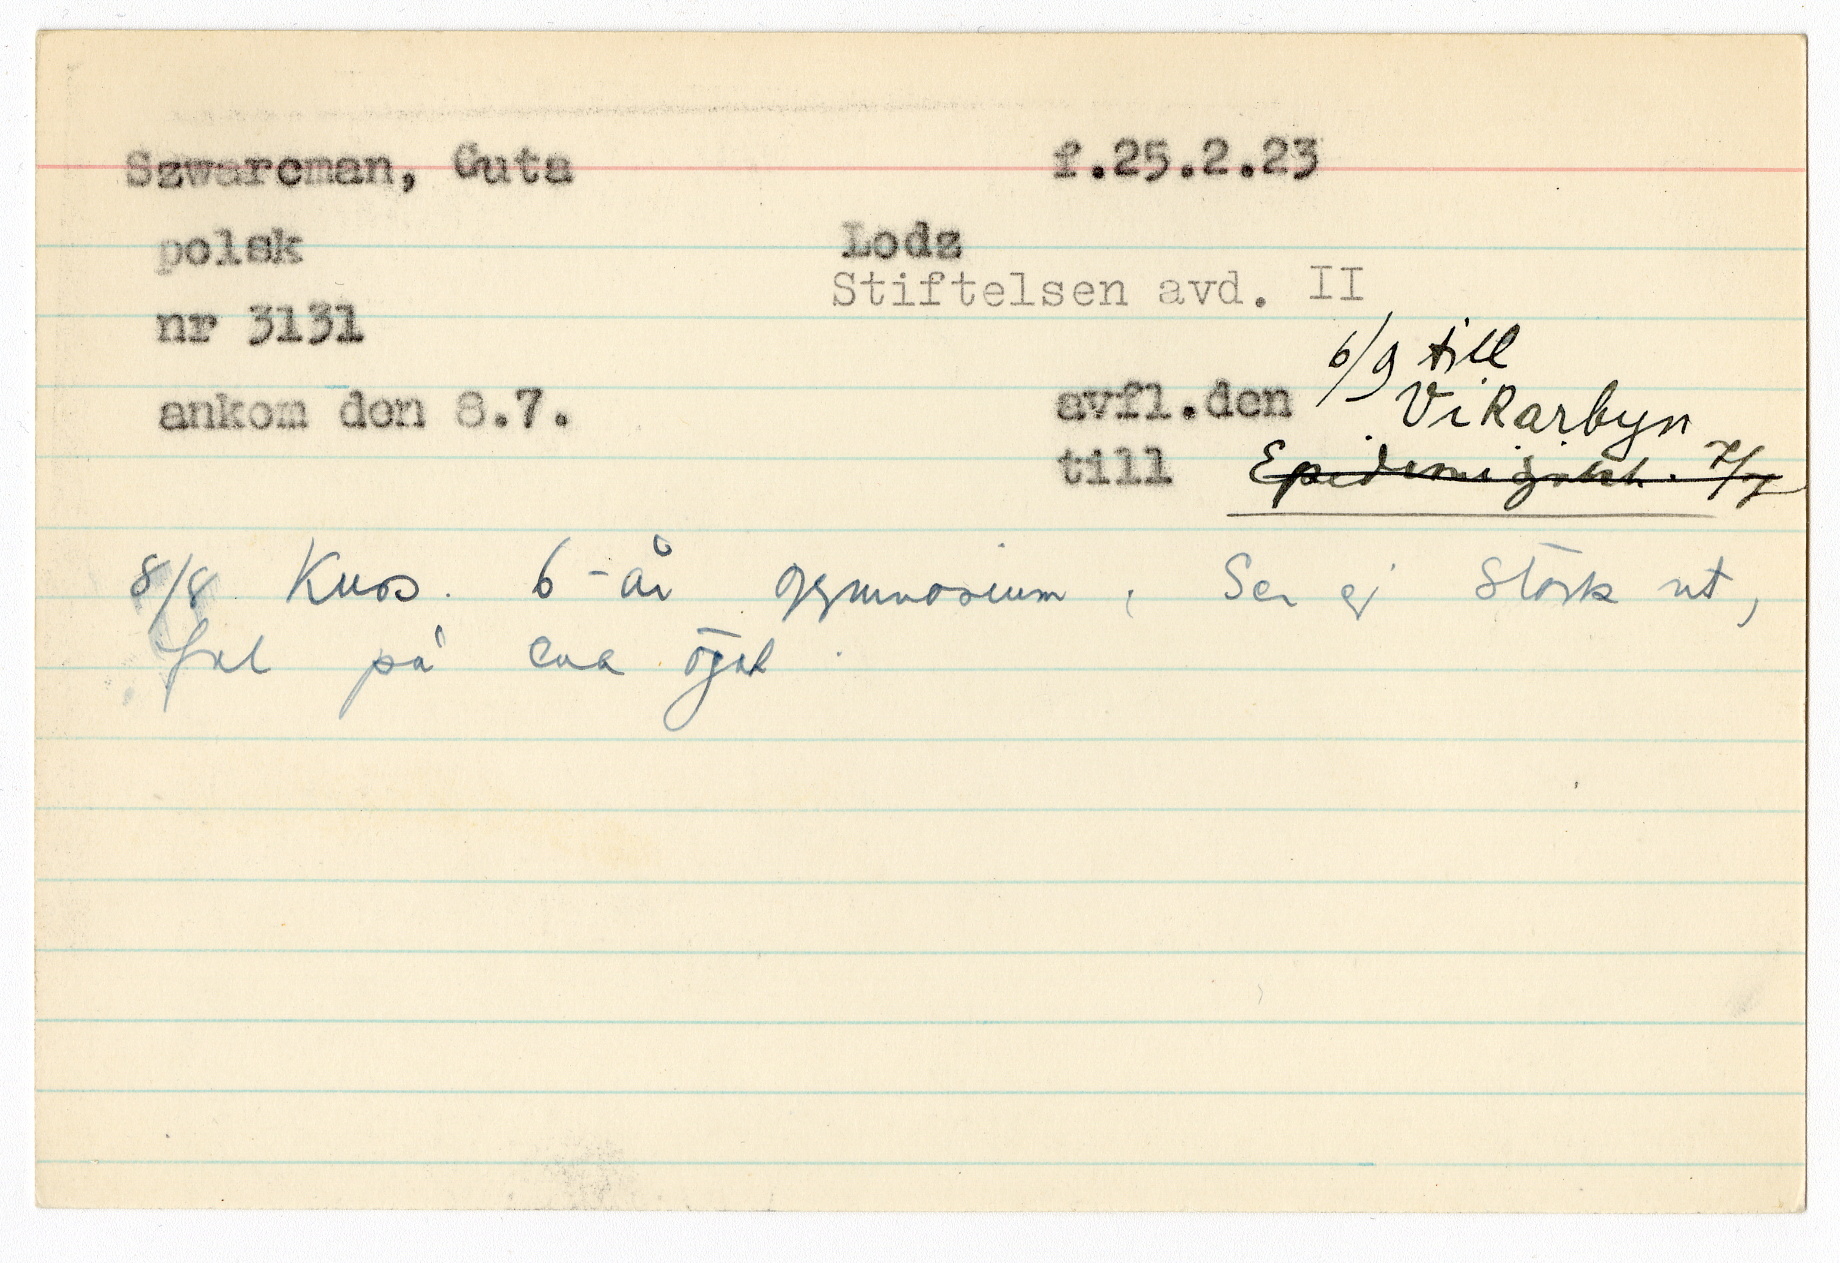 Szwarcman, Guta f.25.2.23
polsk Lodz
Stiftelsen avd. II
nr 3131
6/9 till
ankom den 8.7. avfl.den Vikarbyn
till Epidemisjukh. 7/7
8/8 Kuss. 6-år gymnasium. Ser ej stark ut,
fel på ena ögat.